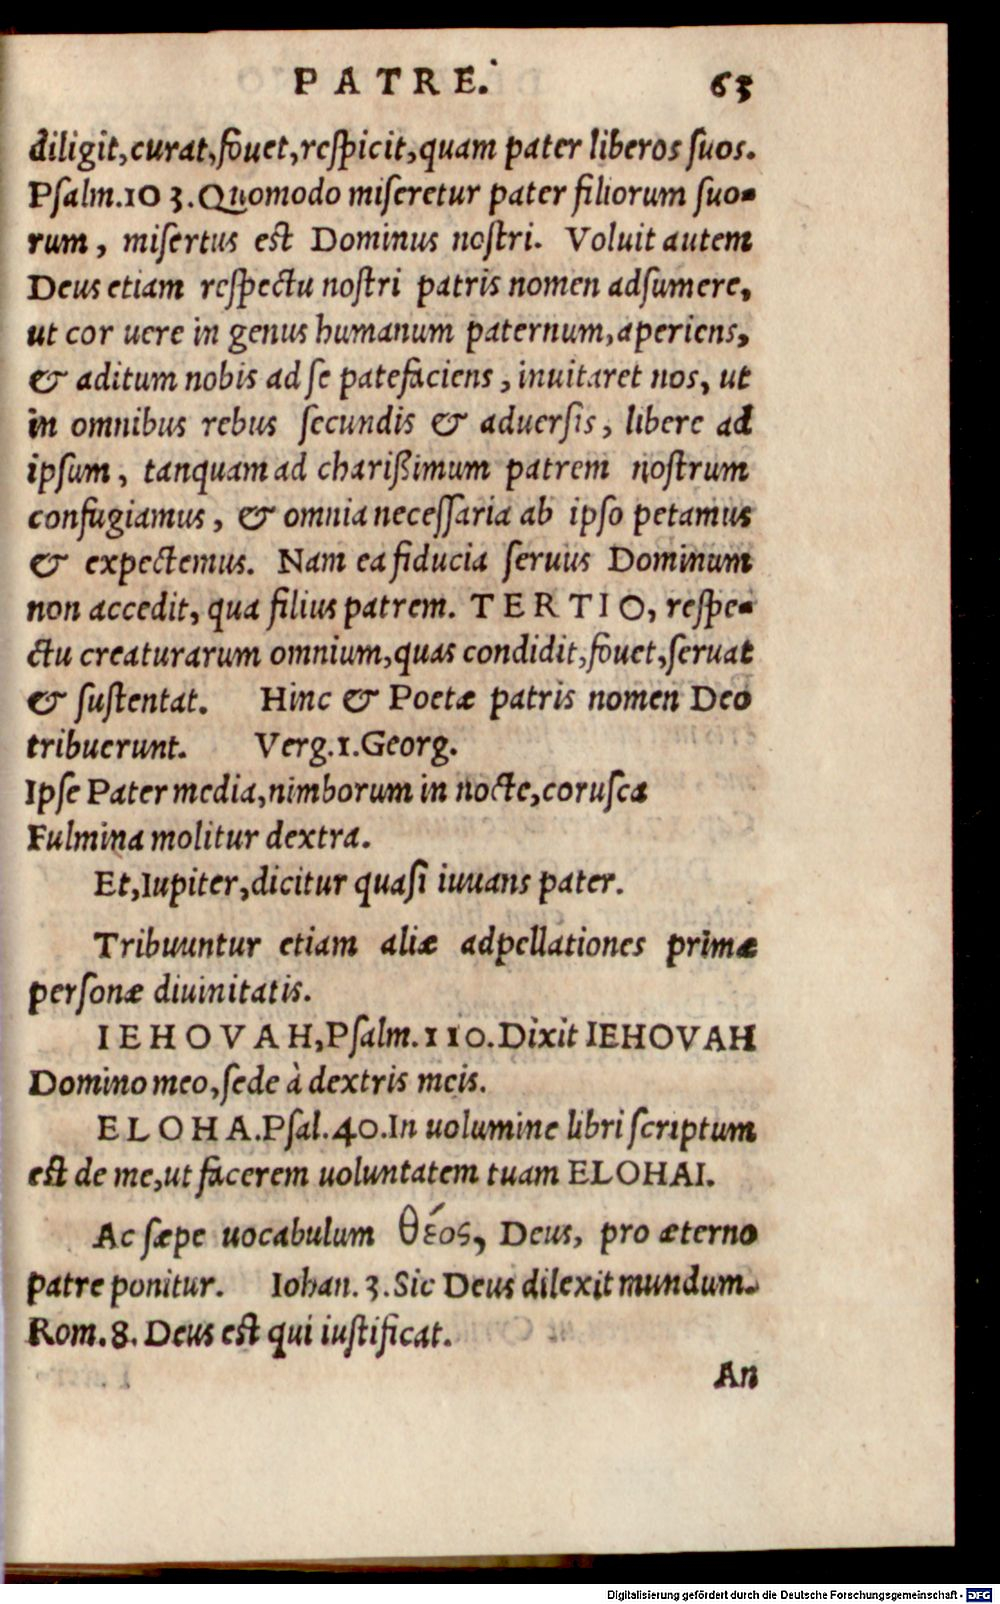 PATRE. 63
diligit, curat, fouet, respicit, quam pater liberos suos.
Psalm. 103. Quomodo miseretur pater filiorum suo-
rum, misertus est Dominus nostri. Voluit autem
Deus etiam respectu nostri patris nomen adsumere,
ut cor uere in genus humanum paternum, aperiens,
& aditum nobis ad se patefaciens, inuitaret nos, ut
in omnibus rebus secundis & aduersis, libere ad
ipsum, tanquam ad charißimum patrem nostrum
confugiamus, & omnia necessaria ab ipso petamus
& expectemus. Nam ea fiducia seruus Dominum
non accedit, qua filius patrem. TERTIO, respe-
ctu creaturarum omnium, quas condidit, fouet, seruat
& sustentat. Hinc & Poetæ patris nomen Deo
tribuerunt. Verg. 1. Georg.
Ipse Pater media, nimborum in nocte, corusca
Fulmina molitur dextra.
Et, Iupiter, dicitur quasi iuuans pater.
Tribuuntur etiam aliæ adpellationes primæ
personæ diuinitatis.
IEHOVAH, Psalm. 110. Dixit IEHOVAH
Domino meo, sede à dextris meis.
ELOHA. Psal. 40. In uolumine libri scriptum
est de me, ut facerem uoluntatem tuam ELOHAI.
Ac sæpe uocabulum θέος, Deus, pro æterno
patre ponitur. Iohan. 3. Sic Deus dilexit mundum.
Rom. 8. Deus est qui iustificat.
An
Digitalisierung gefördert durch die Deutsche Forschungsgemeinschaft - DFG